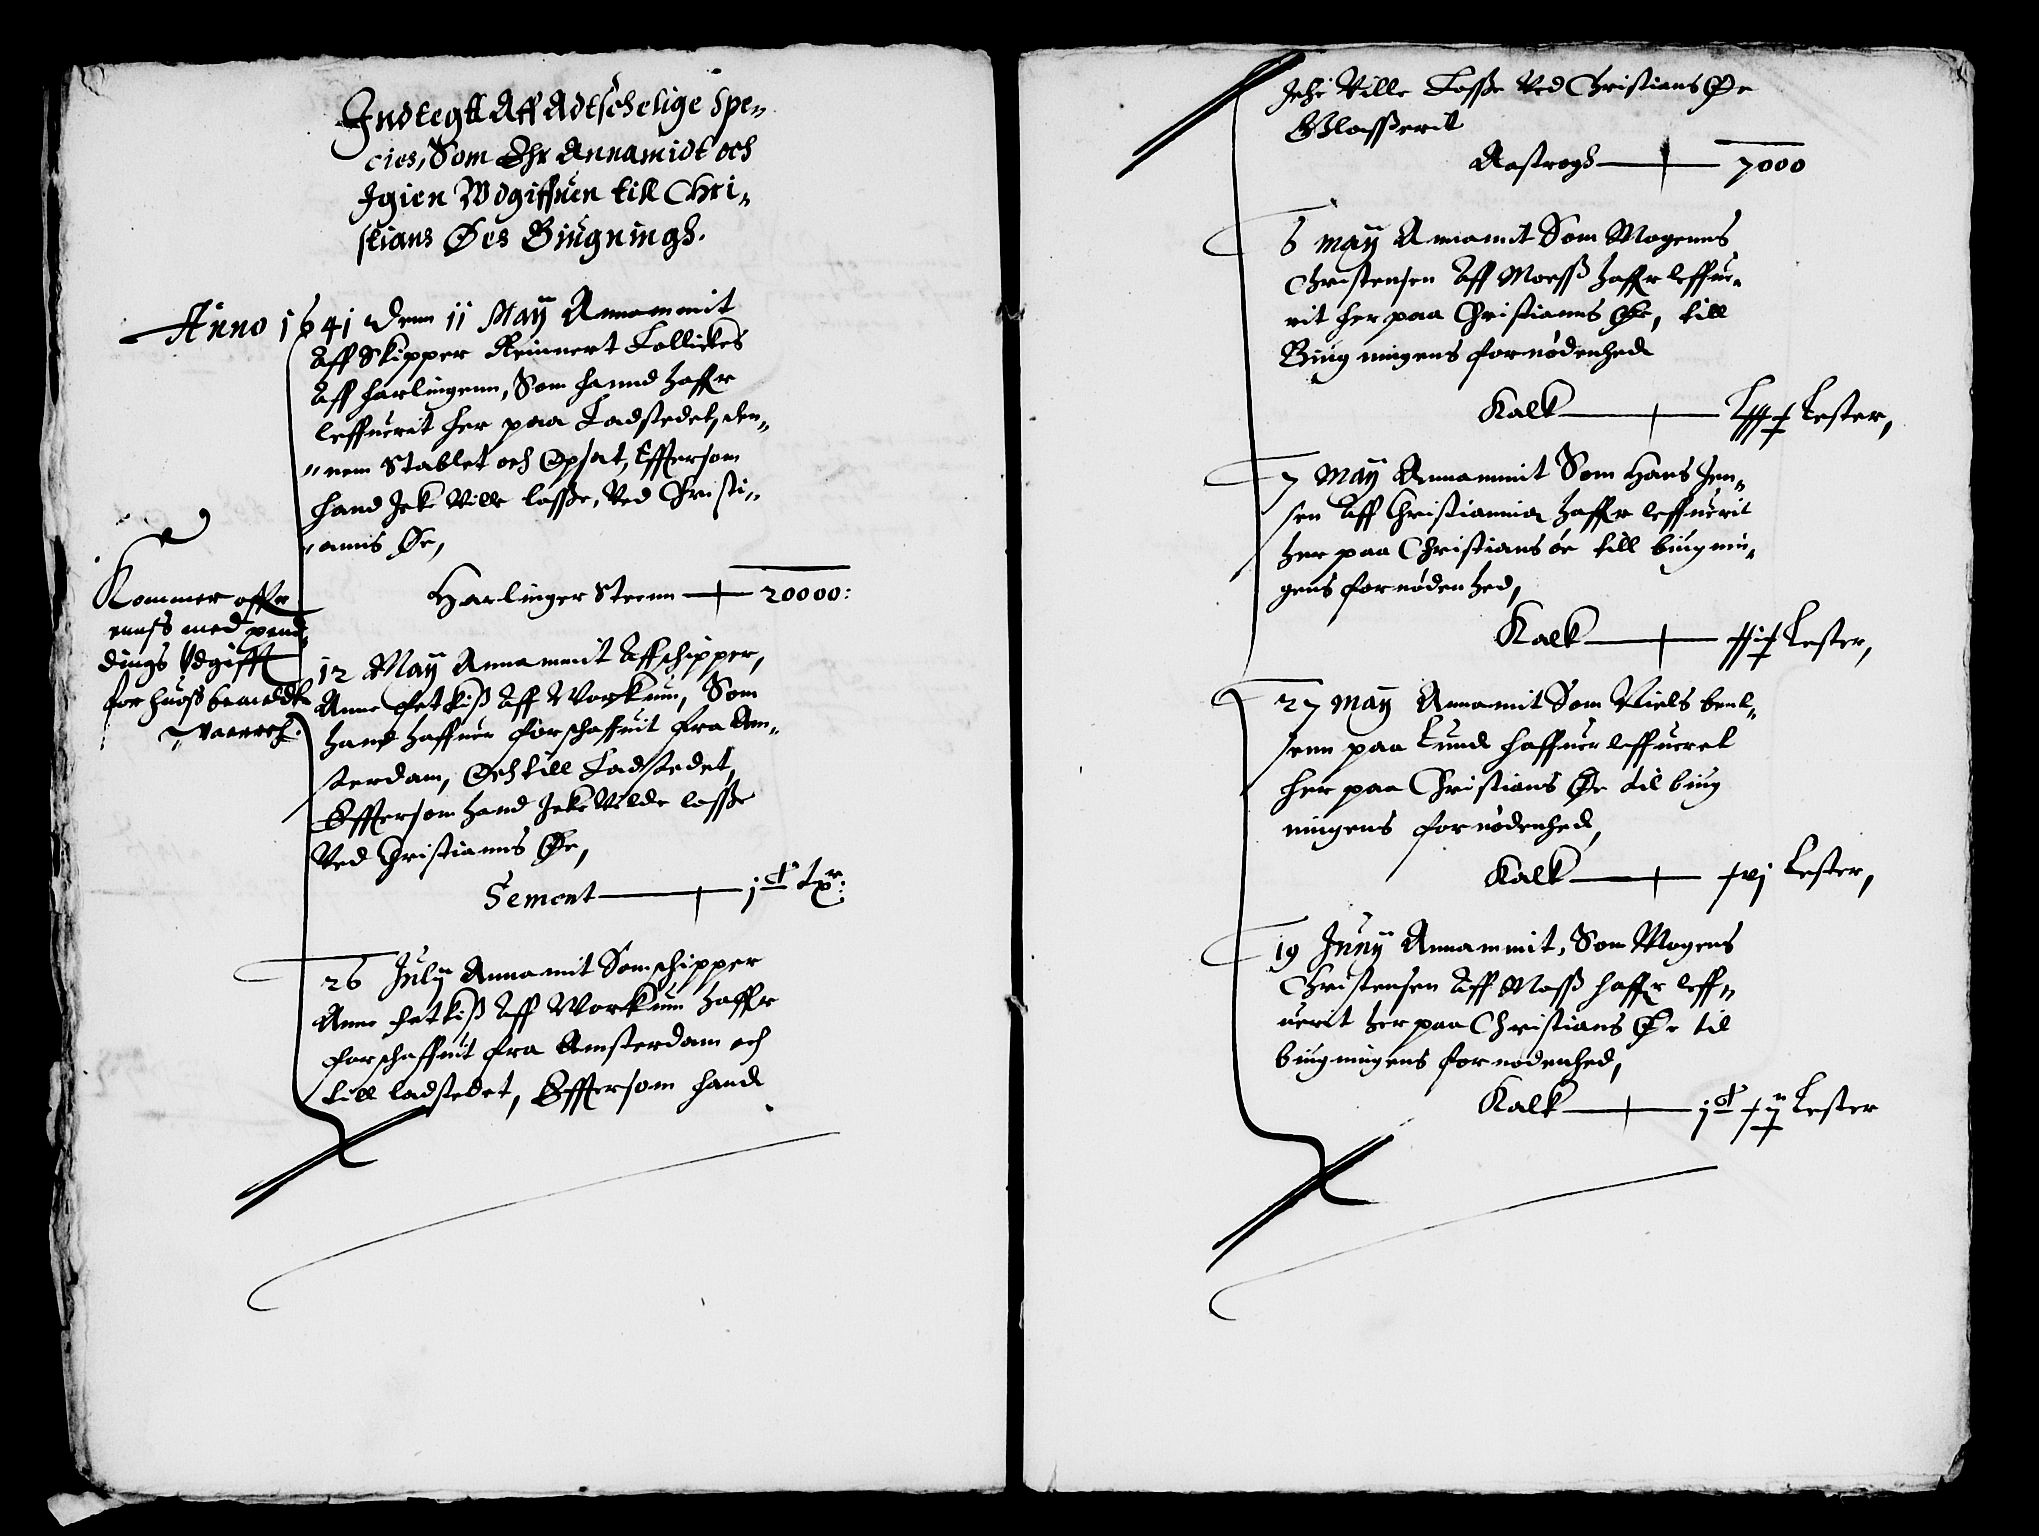 Indtegtt Aff Adtschelige Spe-
cies, Som Ehr Annamidt och
Igien Wdgiffuen till Chri-
stians Øes Biugningh.
Anno 1641 denn 11 Maÿ Annammit
Aff Skipper Reinnert Lollickes
Aff Harlingenn, Som hannd haffr
leffuerit her paa Ladstedet, den-
nem Stablet och Opsat, Efftersom
hand Jcke Ville losse, Ved Christi-
anns Øe,
Harlinger Steenn 20000:
Kommer offr
eenss med penn
dings Udgifft
for huoss bemeldte
vaarech.
12 Maÿ Annammit Aff schipper,
Anne Fetkiß Aff Workum, Som
hand haffuer forschaffuit fra Am-
sterdam, Och till Ladstedet,
Efftersom hand Jcke Vilde losse
Ved Christianns Øe,
Sement 1 c tpr:
26 Julÿ Annammit Som schipper
Anne Fetkiß Aff Workum haffr
forschaffuit fra Amsterdam och
till ladstedet, Efftersom hand
Jche Ville Losse Ved Christians Øe
Glasserit
Aastragh 7000
6 maÿ Annamit Som Mogenns
Christensen Aff Moess haffr leffue-
rit her paa Christianns Øe, till
Biugningens fornødenhed
Kalk Lester,
7 Maÿ Annammit Som Hans Jen-
sen Aff Christiannia haffr leffuerit
her paa Christians øe till biugnin-
gens fornødenhed,
Kalk Lester,
27 maÿ Annamit Som Niels bent-
senn paa Lund haffuer leffueret
her paa Christians Øe til biug
ningens fornødenhed,
Kalk xvj Lester,
19 Junÿ Annammit, Som Mogens
Christensen Aff Moss haffr leff-
uerit her paa Christians Øe til
biugningens fornodenhed,
Kalk Lester